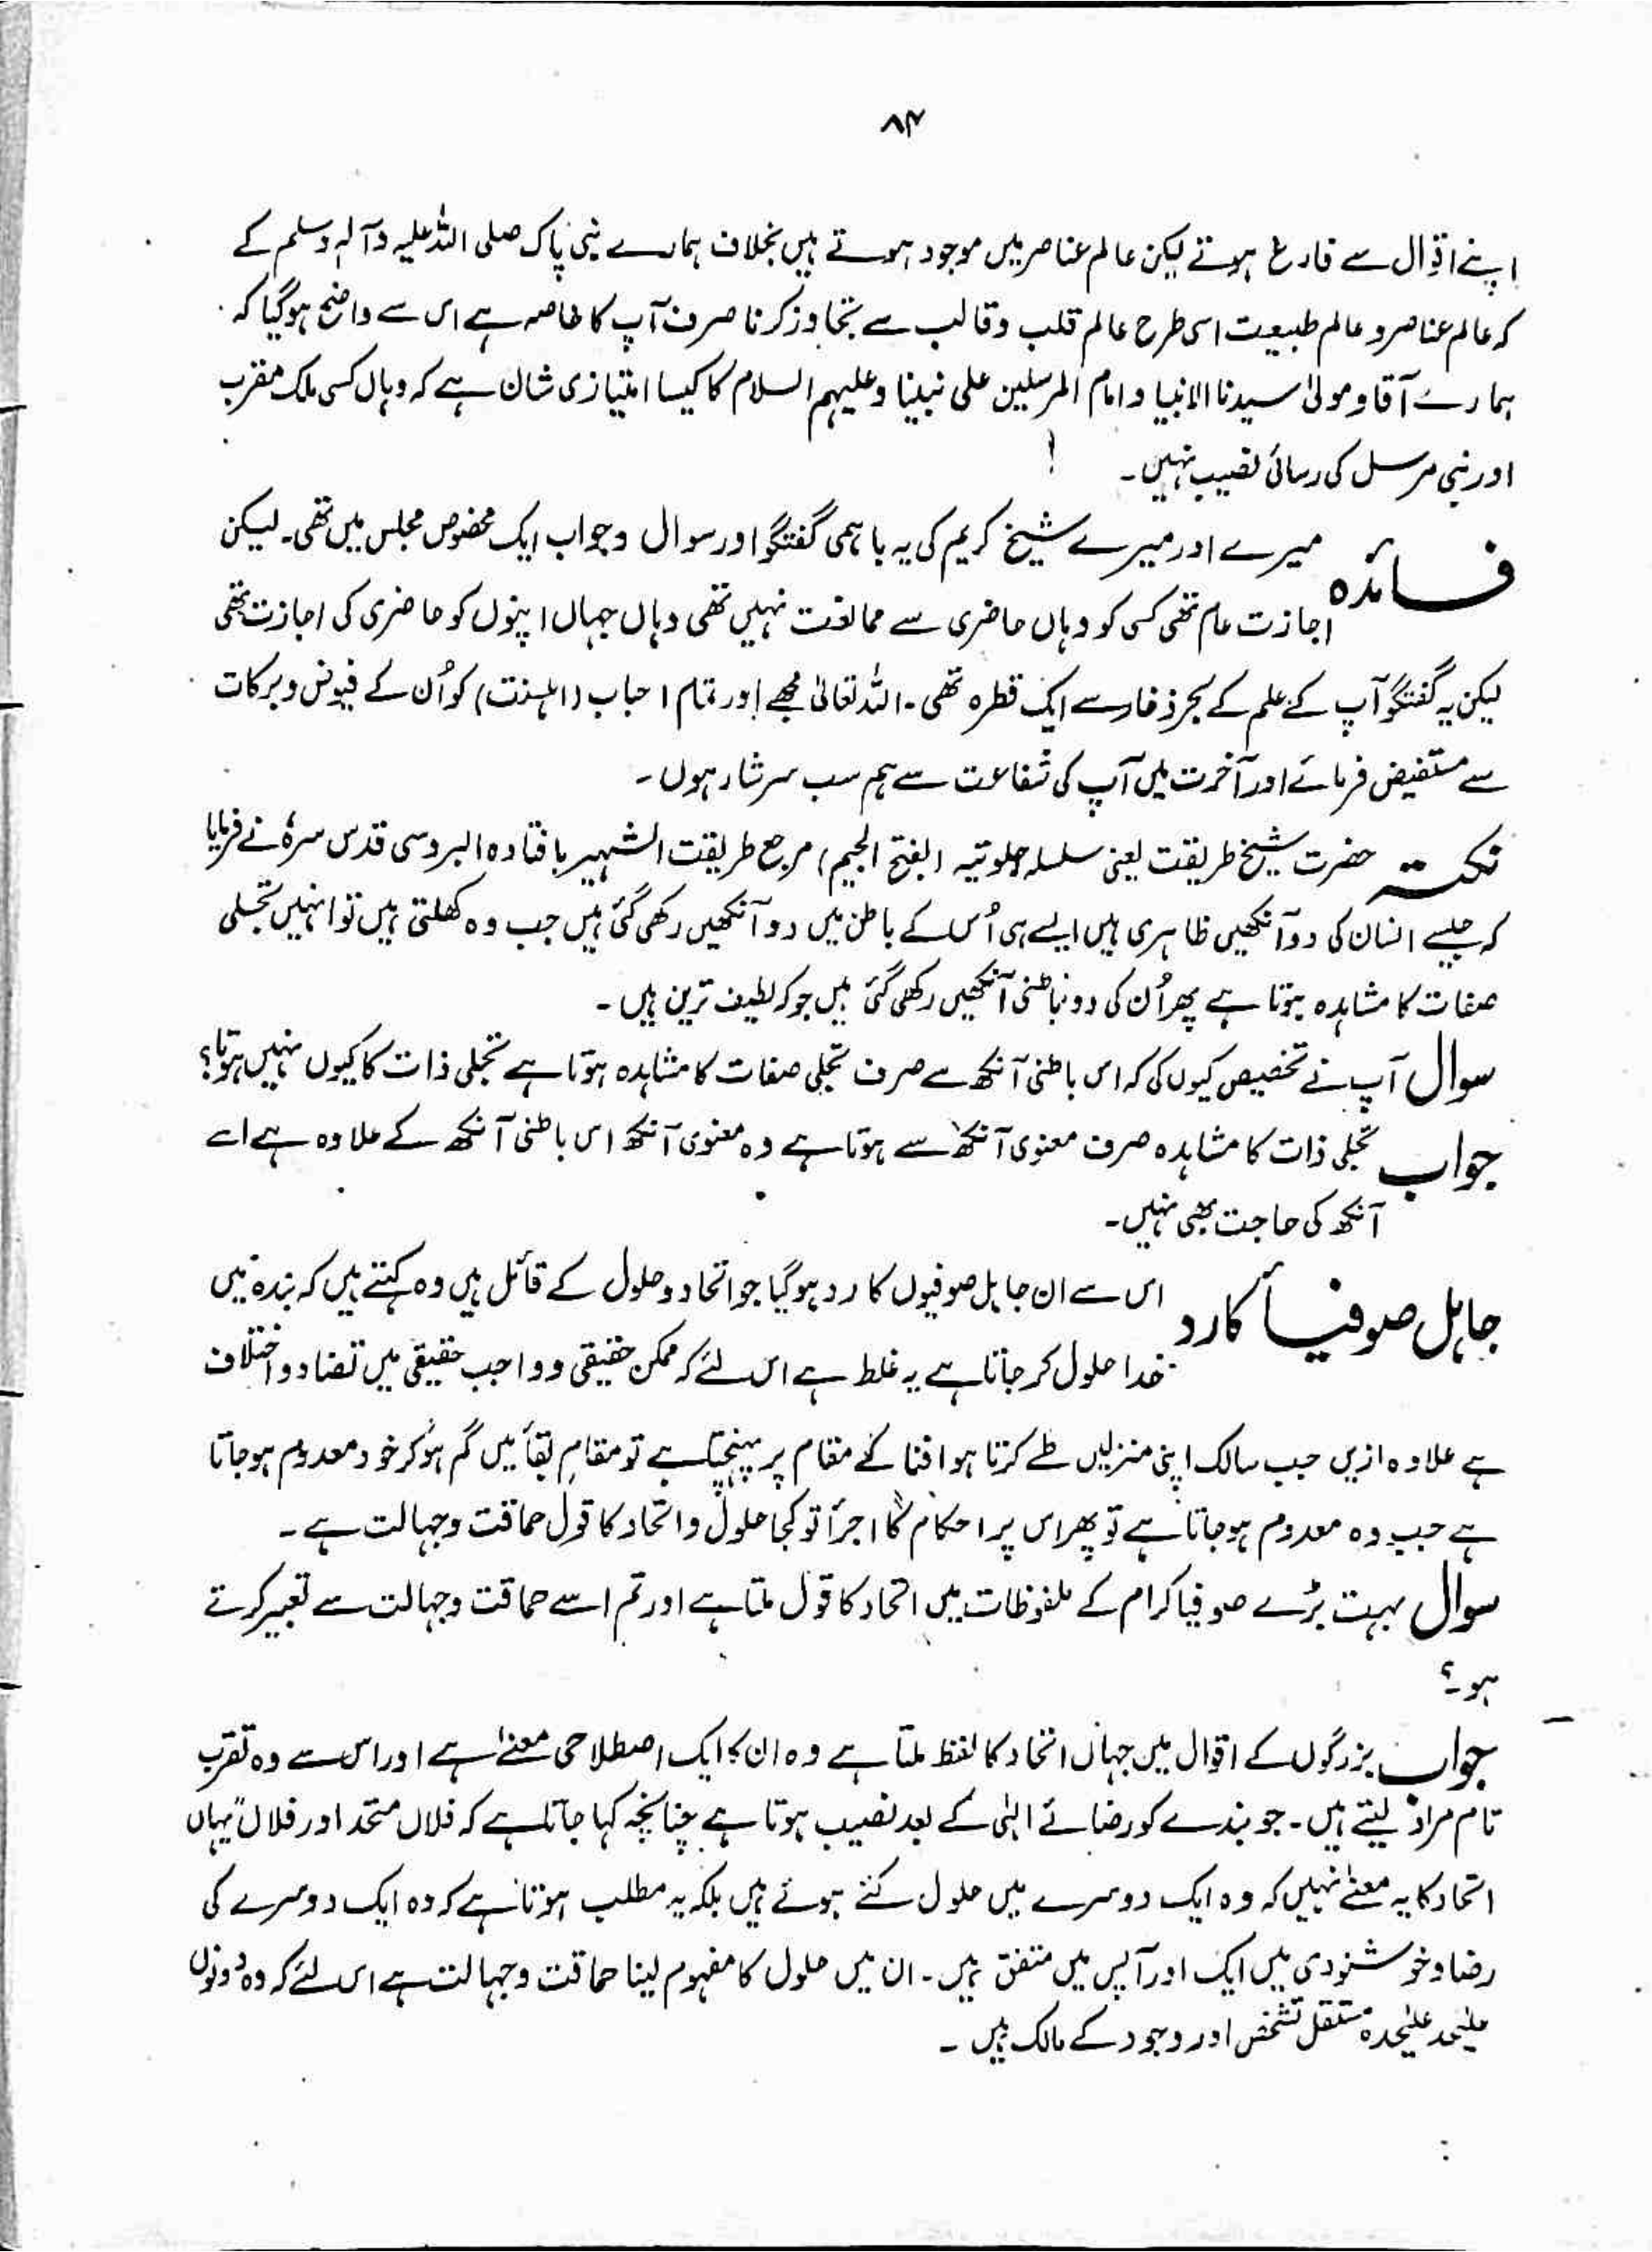 ۸۴
اپنے اقوال سے فارغ ہوتے لیکن عالم عناصر میں موجود ہوتے ہیں بخلاف ہمارے نبی پاک صلی اللہ علیہ وآلہٖ وسلم کے
کہ عالم عناصر و عالم طبیعت اسی طرح عالم قلب و قالب سے تجاوز کرنا صرف آپ کا خاصہ ہے اس سے واضح ہوگیا کہ
ہمارے آقا و مولیٰ سیدنا الانبیا و امام المرسلین علی نبینا وعلیہم السلام کا کیسا امتیازی شان ہے کہ وہاں کسی ملک مقرب
اور نبی مرسل کی رسائی نصیب نہیں۔
فائدہ میرے اور میرے شیخ کریم کی یہ باہمی گفتگو اور سوال و جواب ایک مخصوص مجلس میں تھی۔ لیکن
اجازت عام تھی کسی کو وہاں حاضری سے ممانعت نہیں تھی وہاں جہاں اپنوں کو حاضری کی اجازت تھی
لیکن یہ گفتگو آپ کے علم کے بحر ذخار سے ایک قطرہ تھی۔ اللہ تعالیٰ مجھے اور تمام احباب (اہلسنت) کو اُن کے فیوض و برکات
سے مستفیض فرمائے اور آخرت میں آپ کی شفاعت سے ہم سب سرشار ہوں۔
نکتہ حضرت شیخ طریقت یعنی سلسلہ جلوتیہ (بفتح الجیم) مرجع طریقت الشہیر بافتادہ البروسی قدس سرہٗ نے فرمایا
کہ جیسے انسان کی دو آنکھیں ظاہری ہیں ایسے ہی اُس کے باطن میں دو آنکھیں رکھی گئی ہیں جب وہ کھلتی ہیں تو انہیں تجلی
صفات کا مشاہدہ ہوتا ہے پھر اُن کی دو باطنی آنکھیں رکھی گئی ہیں جو کہ لطیف ترین ہیں۔
سوال آپ نے تخصیص کیوں کی کہ اس باطنی آنکھ سے صرف تجلی صفات کا مشاہدہ ہوتا ہے تجلی ذات کا کیوں نہیں ہوتا؟
جواب تجلی ذات کا مشاہدہ صرف معنوی آنکھ سے ہوتا ہے وہ معنوی آنکھ اس باطنی آنکھ کے علاوہ ہے اسے
آنکھ کی حاجت بھی نہیں۔
جاہل صوفیأ کا رد اس سے ان جاہل صوفیوں کا رد ہوگیا جو اتحاد و حلول کے قائل ہیں وہ کہتے ہیں کہ بندہ میں
خدا حلول کر جاتا ہے یہ غلط ہے اس لئے کہ ممکن حقیقی و واجب حقیقی میں تضاد و اختلاف
ہے علاوہ ازیں جب سالک اپنی منزلیں طے کرتا ہوا فنا کے مقام پر پہنچتا ہے تو مقامِ بقأ میں گم ہو کر خود معدوم ہو جاتا
ہے جب وہ معدوم ہو جاتا ہے تو پھر اس پر احکام کا اجرأ تو کجا حلول و اتحاد کا قول حماقت و جہالت ہے۔
سوال بہت بڑے صوفیا کرام کے ملفوظات میں اتحاد کا قول ملتا ہے اور تم اسے حماقت و جہالت سے تعبیر کرتے
ہو۔؟
جواب بزرگوں کے اقوال میں جہاں اتحاد کا لفظ ملتا ہے وہ ان کا ایک اصطلاحی معنےٰ ہے اور اس سے وہ تقرب
تام مراد لیتے ہیں۔ جو بندے کو رضائے الہٰی کے بعد نصیب ہوتا ہے چنانچہ کہا جاتا ہے کہ فلاں متحد اور فلاں" یہاں
اتحاد کا یہ معنےٰ نہیں کہ وہ ایک دوسرے میں حلول کئے ہوئے ہیں بلکہ یہ مطلب ہوتا ہے کہ وہ ایک دوسرے کی
رضا و خوشنودی میں ایک اور آپس میں متفق ہیں۔ ان میں حلول کا مفہوم لینا حماقت و جہالت ہے اس لئے کہ وہ دونوں
علیٰحد علیٰحدہ مستقل تشخص اور وجود کے مالک ہیں۔